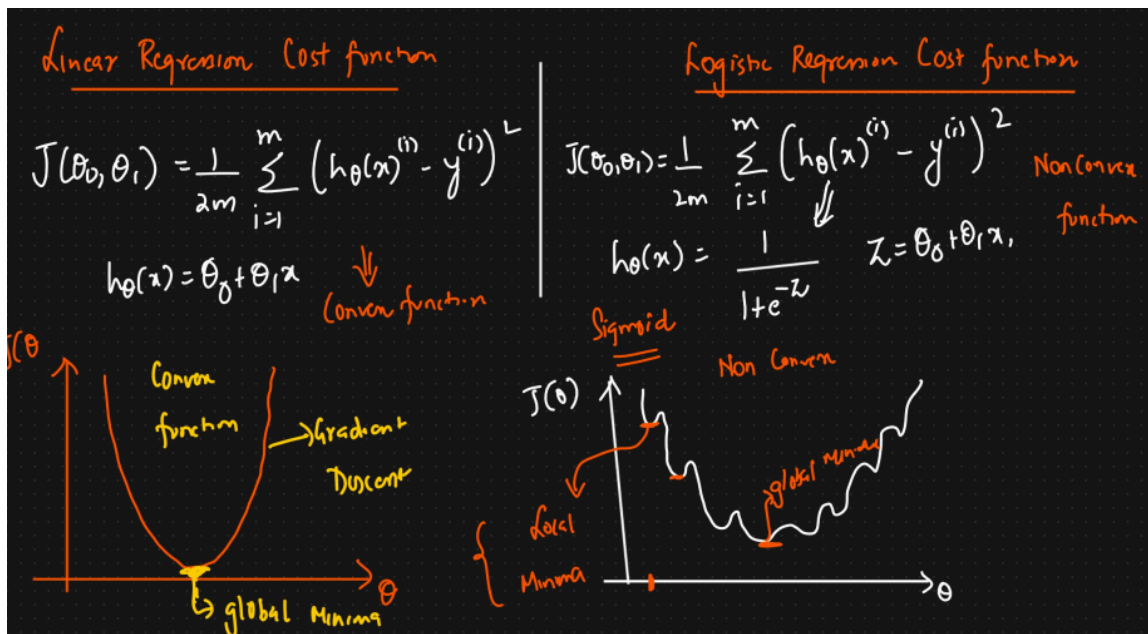 Linear Regression Cost function
J(θ₀, θ₁) = 1/2m ∑ᵢ₌₁ᵐ (hθ(x)⁽ⁱ⁾ - y⁽ⁱ⁾)²
hθ(x) = θ₀ + θ₁x
Convex function
J(θ
Convex
function
Gradient
Descent
θ
global Minima
Logistic Regression Cost function
J(θ₀, θ₁) = 1/2m ∑ᵢ₌₁ᵐ (hθ(x)⁽ⁱ⁾ - y⁽ⁱ⁾)²
Non Convex
function
hθ(x) = 1/(1+e⁻ᶻ) Z = θ₀ + θ₁x₁
Sigmoid
Non Convex
J(θ)
global Minima
Local
Minima
θ